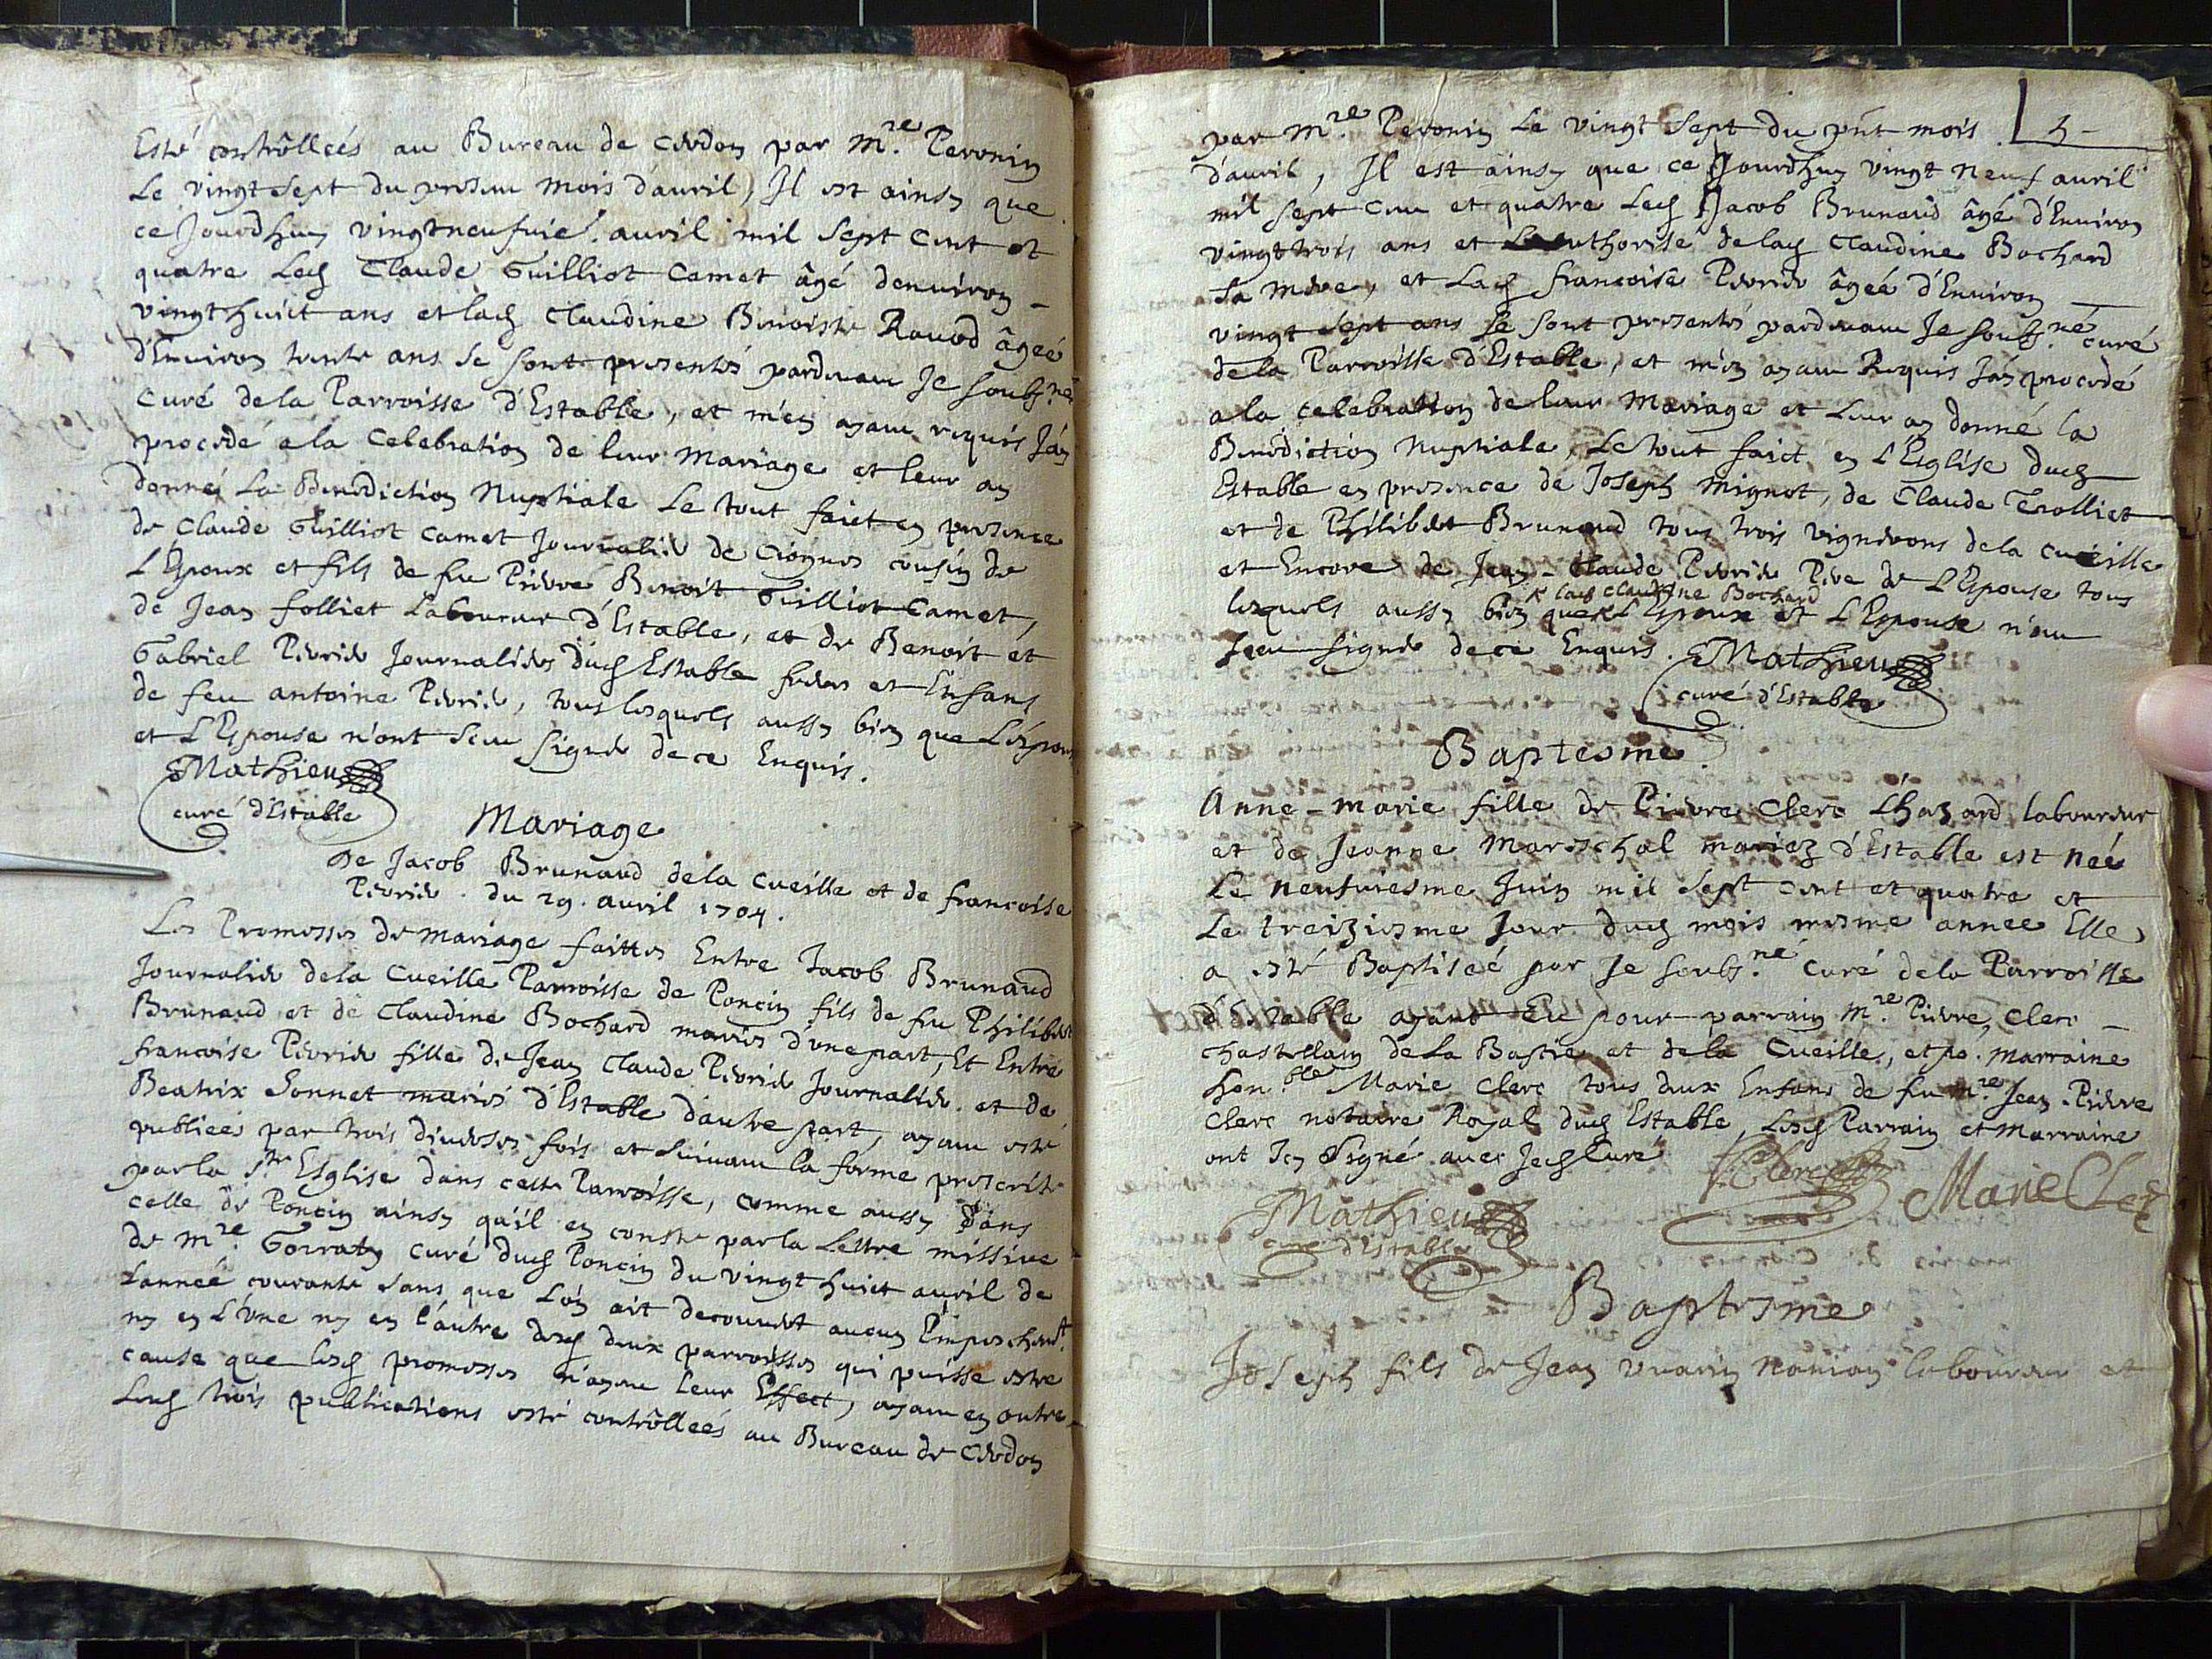 Esté contrôlleés au Bureau de Cerdon par m.re Peronin
Le vingt sept du present mois d'auril, Il est ainsy que
ce Jourdhuy vingtneufuie. auril mil sept cent et
quatre Led Claude Guilliot Camet âgé denuiron –
vingthuict ans et lad Claudine Benoiste Rauod âgeé
d'Enuiron trente ans se sont presentés parduant Je soubsné
curé dela Parroisse d'Estable, et m'en ayant requis J'ay
procedé a la Celebration de leur Mariage et leur ay
donné La Benediction Nuptiale Le tout faict en presence
de Claude Guilliot Camet Journalier de cousin de
L'Espoux et fils de feu Pierre Benoit Guilliot Camet,
de Jean folliet Laboureur d'Estable, et de Benoit et
Gabriel Perrier Journaliers dud Estable freres et Enfans
de feu antoine Perrier, tous lesquels aussy bien que L'Espoux
et L'Espouse n'ont sceu signer de ce Enquis.
Mathieu
curé d'Estable
Mariage
De Jacob Brunaud dela Cueille et de francoise
Perrier. du 29. auril 1704.
Les Promesses de mariage faittes Entre Jacob Brunaud
Journalier dela Cueille Parroisse de Poncin fils de feu Philibert
Brunaud et de Claudine Bochard mariés d'une part, Et Entre
francoise Perrier fille de Jean Claude Perrier Journalier. et de
Beatrix Sonnet mariés d'Estable d'autre part, ayant esté
publieés par trois diuerses fois et suiuant la forme prescrite
par la ste Esglise dans cette Parroisse, comme aussy dans
celle de Poncin ainsy qu'il en conste par la Lettre missiue
de m.re Gorraty curé dud Poncin du vingt huict auril de
L'anneé courante sans que L'on ait decouuert aucun Empeschemt.
ny en L'vne ny en l'autre desd deux parroisses qui puisse estre
cause que lesd promesses n'ayent leur Effect, ayant en outre
Lesd trois publications esté contrôlleés au Bureau de Cerdon
par m.re Peronin Le vingt sept du pnt mois
5
d'auril, Il est ainsy que ce Jourdhuy vingt neuf auril
mil sept cent et quatre Led Jacob Brunaud âgé d'Enuiron
vingt trois ans et authorisé delad Claudine Bochard
sa mere, et Lad francoise Perrier âgeé d'Enuiron
vingt sept ans se sont presentés parduant Je soubs.né curé
dela Parroisse d'Estable, et m'en ayant Requis J'ay procedé
a la celebration de leur Mariage et Leur ay donné la
Benediction Nuptiale, Le tout faict en L'Esglise dud
Estable en presence de Joseph Mignot, de Claude Trolliet
et de Philibert Brunaud tous trois vignerons dela cueille
et Encore de Jean-Claude Perrier Pere de L'Espouse tous
lad Claudine Bochard
lesquels aussy bien que L'Espoux et L'Espouse n'ont
sceu signer de ce Enquis. Mathieu
curé d'Estable
Baptesme
Anne-marie fille de Pierre Clerc Lhazard laboureur
et de Jeanne Mareschal mariez d'Estable est neé
Le neufuiesme Juin mil sept cent et quatre et
Le treiziesme Jour dud mois mesme anneé Elle
a esté Baptiseé par Je soubs.né curé dela Parroisse
d'Estable ayant Eu pour parrain m.re Pierre Clerc –
chastellain de La Bastie et dela Cueille, et po. marraine
hon.ble Marie Clerc tous deux Enfans de feu m.re Jean-Pierre
Clerc notaire Royal dud Estable, Lesd Parrain et Marraine
ont Icy signé auec Jed Curé
P. Clerc Marie Clerc
Mathieu
curé d'Estable
Baptesme
Joseph fils de Jean vuarin laboureur et